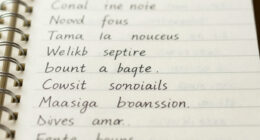 Conal ine noie
Noovd fous
Tama la nouceus
Welikb septire
bount a baqte.
Cowsit somoiails
Maasiga boanssion.
Dives amar.